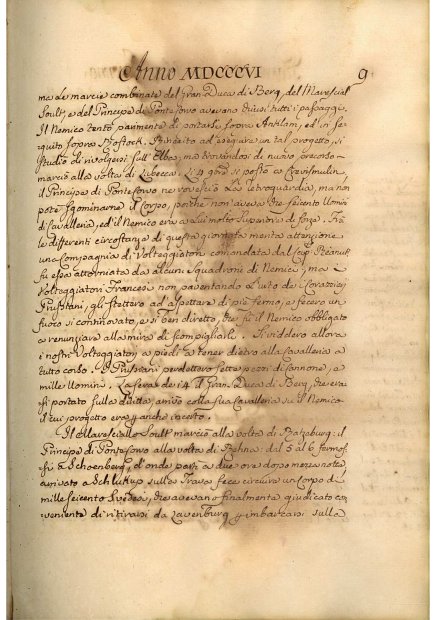 Anno MDCCCVI 9
ma le marcie combinate del Gran Duca di Berg, del Maresciallo
Soult, e del Principe di Ponte Corvo avevano chiusi tutti i passaggi.
Il Nemico tentò parimenti di portarsi sopra Anklam, ed in se-
guito sopra Rostock. Impedito ad eseguire un tal progetto, si
studiò di rivolgersi sull'Elba, ma trovandosi di nuovo precorso
marciò alla volta di Lubecca. Li 4 9bre si postò a Crevismulin,
il Principe di Pontecorvo ne rovesciò la retroguardia, ma non
potè sgominarne il Corpo, poichè non aveva che seicento Uomini
di Cavalleria, ed il Nemico era a lui molto superiore di forze. Fra
le differenti circostanze di questa giornata merita attenzione
una Compagnia di Volteggiatori comandata dal Cap.
fu essa attorniata da alcuni Squadroni di Nemici, ma i
Volteggiatori Francesi non paventando l'urto de' Corazzieri
Prussiani, gli stettero ad aspettare di piè fermo, e fecero un
fuoco sì continovato, e sì ben diretto, che fù il Nemico obbligato
a renunziare alla mira di scompigliarli. Si viddero allora
i nostri Volteggiatori a piedi a tener dietro alla Cavalleria a
tutto corso. I Prussiani perdettero sette pezzi di Cannone, e
mille Uomini. La sera de' 4 il Gran Duca di Berg, che erasi
si portato sulla diritta arrivò colla sua Cavalleria su il Nemico
il cui progetto era anche incerto.
Il Maresciallo Soult marciò alla volta di Ratzeburg: il
Principe di Pontecorvo alla volta di Rehna: dal 5 al 6 fermos-
si a Schoenberg, d'onde partì a due ora dopo mezza notte,
arrivato a Schlukup sulla Trava fece circuire un Corpo di
mille seicento Svedesi, che avevano finalmente giudicato con-
veniente di ritirarsi da Lavenburg, e imbarcarsi sulla